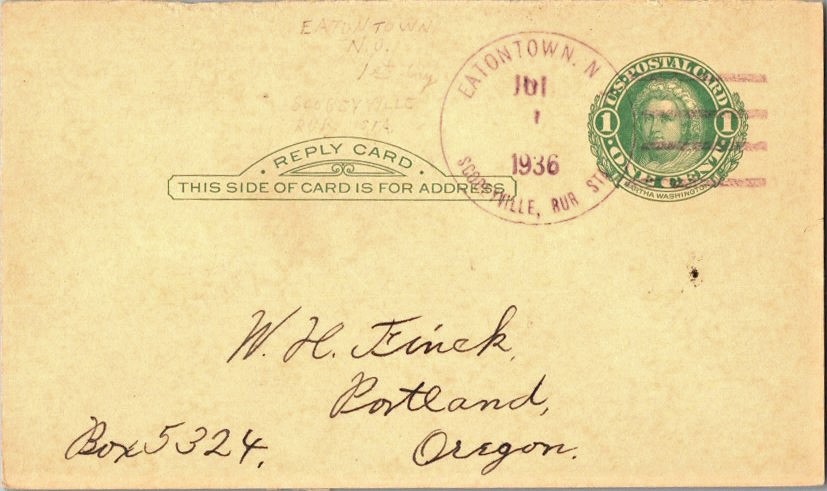 EATONTOWN
N.J.
1st Day
SCOBEYVILLE
RUR STA
EATONTOWN, N
JUL
1
1936
SCOBEYVILLE, RUR STA
U·S·POSTAL CARD
1 1
ONE CENT
MARTHA WASHINGTON
· REPLY CARD ·
THIS SIDE OF CARD IS FOR ADDRESS
W. H. Finck,
Portland,
Box 5324. Oregon.